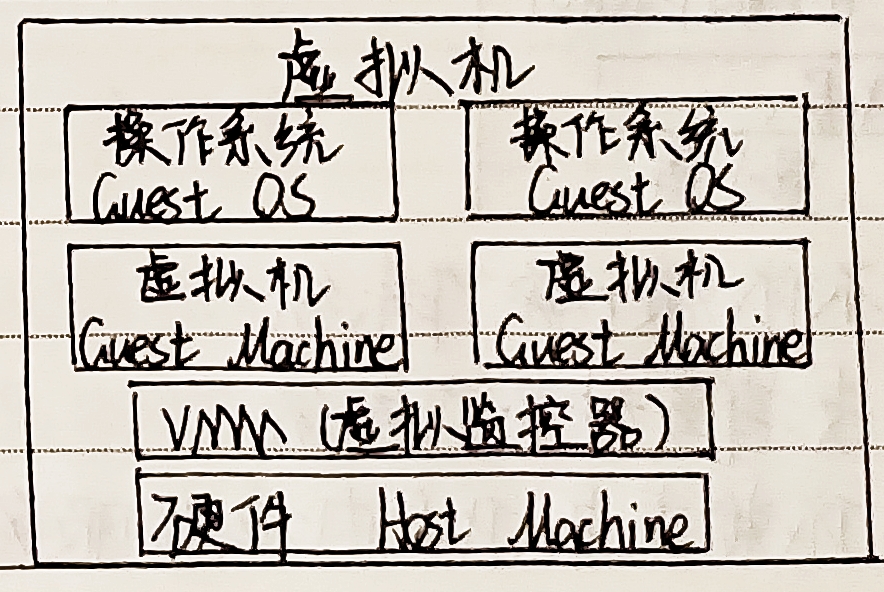 虚拟机
操作系统 操作系统
Guest OS Guest OS
虚拟机 虚拟机
Guest Machine Guest Machine
VMM (虚拟监控器)
硬件 Host Machine